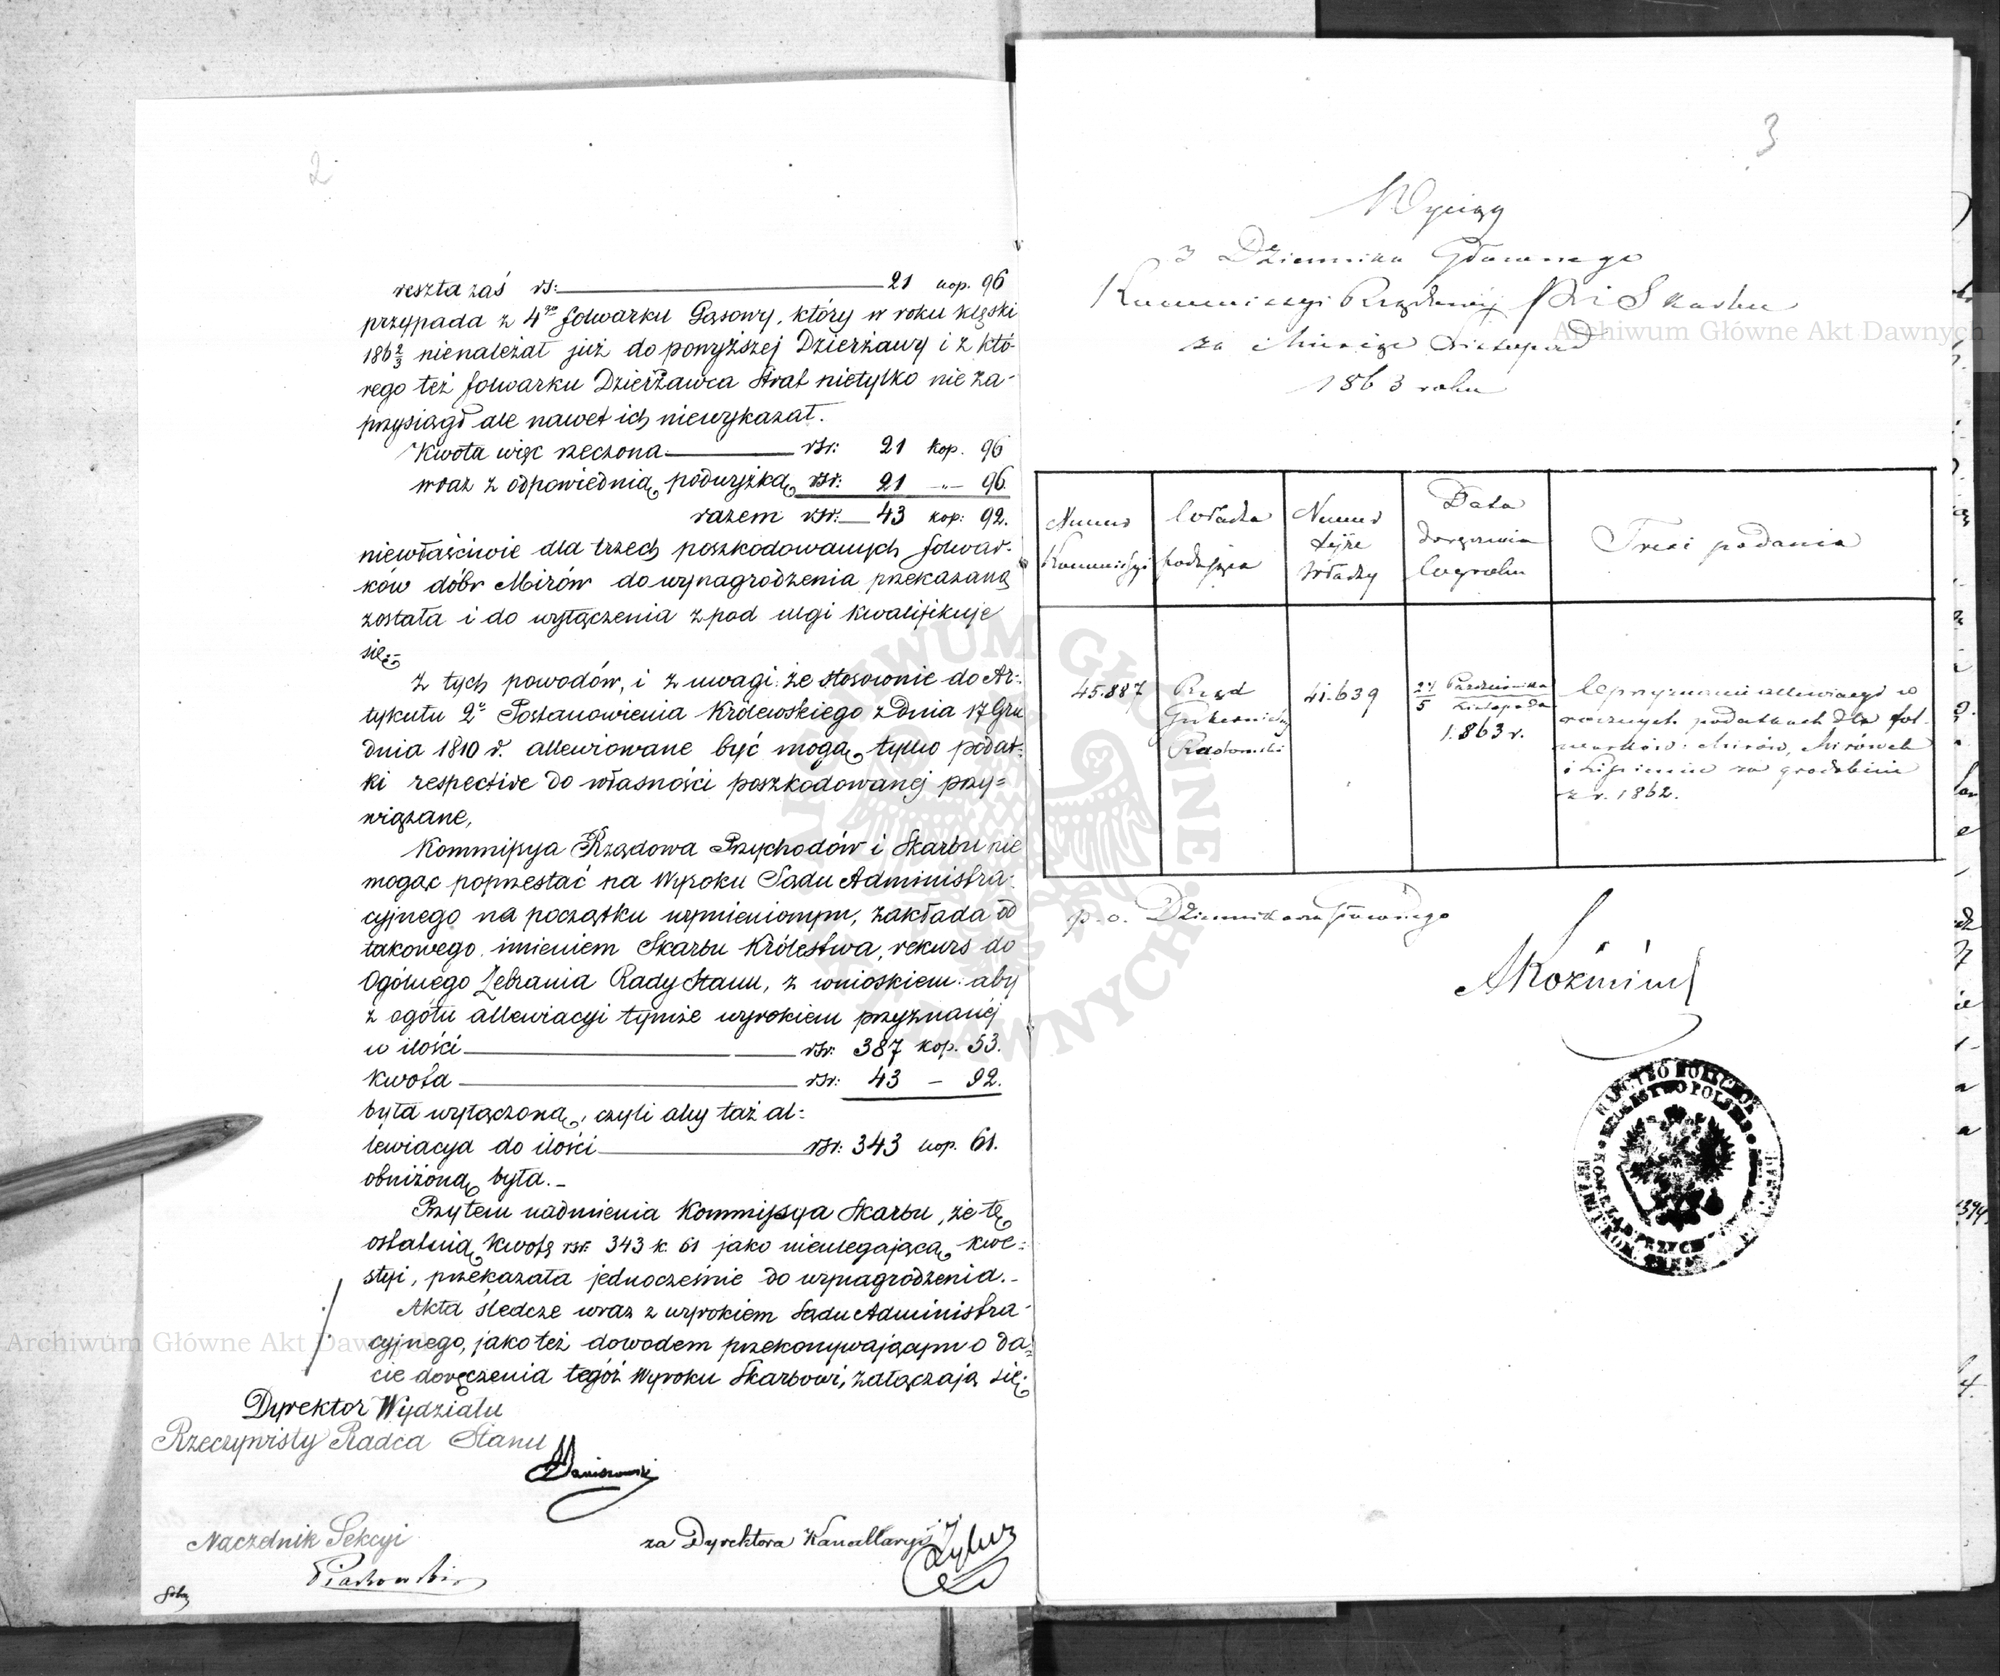 2
reszta zaś rs: 21 kop. 96
przypada z 4go folwarku Gąsowy, który w roku klęski
1862/3 nienależał już do ponyższej Dzierżawy i z któ-
rego też folwarku Dzierżawca strat nietylko nie za-
przysiągł ale nawet ich niewykazał.
Kwota więc rzeczona rsr: 21 kop. 96
wraz z odpowiednią podwyżką rsr: 21 -"- 96.
razem rsr. 43 kop: 92.
niewłaściwie dla trzech poszkodowanych folwar-
ków dóbr Mirów do wynagrodzenia przekazaną
została i do wyłączenia z pod ulgi kwalifikuje
się.-
Z tych powodów, i z uwagi: że stosownie do Ar-
tykułu 2o Postanowienia Królewskiego z Dnia 17 Gru
dnia 1810 r. allewiowane być mogą tylko podat-
ki respective do własności poszkodowanej przy=
wiązane,
Kommissya Rządowa Przychodów i Skarbu nie
mogąc poprzestać na Wyroku Sądu Administra-
cyjnego na początku wymienionym, zakłada od
takowego imieniem Skarbu Królestwa, rekurs do
Ogólnego Zebrania Rady Stanu, z wnioskiem: aby
z ogółu allewiacyi tymże wyrokiem przyznanéj
w ilości rsr: 387 kop. 53.
kwota rsr: 43 - 92.
była wyłączoną, czyli aby taż al=
lewiacya do ilości rsr: 343 kop. 61.
obniżoną była.-
Przytem nadmienia Kommissya Skarbu, że tę
ostatnią kwotę rsr: 343 k. 61 jako nieulegającą kwe=
styi, przekazała jednocześnie do wynagrodzenia.-
Akta śledcze wraz z wyrokiem Sądu Administra-
cyjnego, jako też dowodem przekonywającym o da=
cie doręczenia tegóż Wyroku Skarbowi, załączają się.
Dyrektor Wydziału
Rzeczywisty Radca Stanu
Naczelnik Sekcyi
za Dyrektora Kancellaryi
3
Wyciąg
z Dziennika Głównego
Kommissyi Rządowéj P. i Skarbu
za Miesiąc Listopad
1863 roku
Numer Kommissyi
Władza podająca
Numer tejże Władzy
Data doręczenia Wyroku
Treść podania
45.887
Rząd Gubernialny Radomski
41.639
24/5 Października/Listopada 1863 r.
O przyznanie allewiacyi w
rocznych podatkach dla fol-
warków: Mirów, Mirówek
i Lipienie za gradobicie
z r. 1862.
p.o. Dziennikarza Głównego
AKoźmiński
Archiwum Główne Akt Dawnych
Archiwum Główne Akt Dawnych
ARCHIWUM GŁÓWNE AKT DAWNYCH